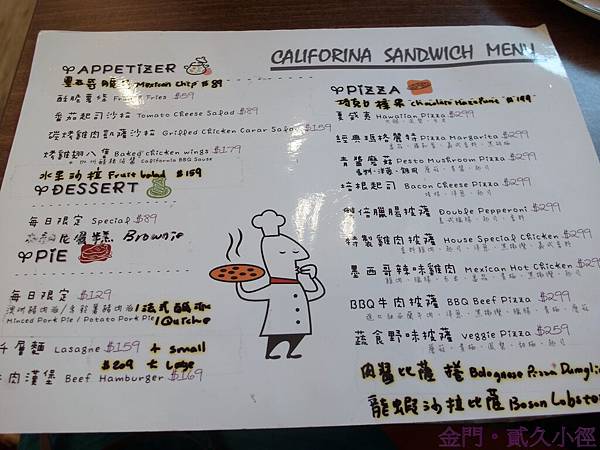 CALIFORINA SANDWICH MENU
APPETIZER
墨西哥脆片 Mexican Chip $89
酥脆薯條 Fries $59
番茄起司沙拉 Tomato Cheese Salad $89
碳烤雞肉凱薩沙拉 Grilled Chicken Caesar Salad $159
烤雞翅八隻 Baked chicken wings $179
California BBQ Sauce
水果沙拉 Fruit Salad $159
DESSERT
每日限定 Special $89
Brownie
PIE
每日限定 $129
Minced Pork Pie / Potato Pork Pie
法式鹹派
Quiche
千層麵 Lasagne $159 small
$209 Large
牛肉漢堡 Beef Hamburger $169
PIZZA
巧克力榛果 $199
夏威夷 Hawaiian Pizza $299
經典瑪格麗特 Pizza Margarita $299
青醬蘑菇 Pesto Mushroom Pizza $299
培根起司 Bacon Cheese Pizza $299
雙倍臘腸披薩 Double Pepperoni $299
特製雞肉披薩 House Special Chicken $299
墨西哥辣味雞肉 Mexican Hot Chicken $299
BBQ牛肉披薩 BBQ Beef Pizza $299
蔬食野味披薩 Veggie Pizza $259
肉醬比薩捲 Bolognese Pizza
龍蝦沙拉比薩 Boson Lobster
金門·貳久小徑